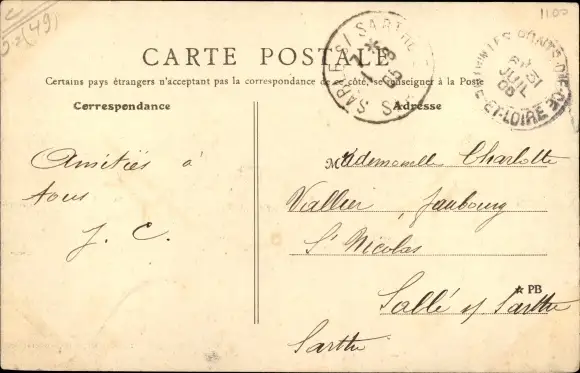 (49)
1100
CARTE POSTALE
Certains pays étrangers n'acceptant pas la correspondance de ce côté, se renseigner à la Poste
Correspondance
Adresse
Amitiés à
tous
J. C.
Mademoiselle Charlotte
Vallier, faubourg
St Nicolas
PB
Sablé s/ Sarthe
Sarthe
SARTHE
31
JUIL
ET-LOIRE